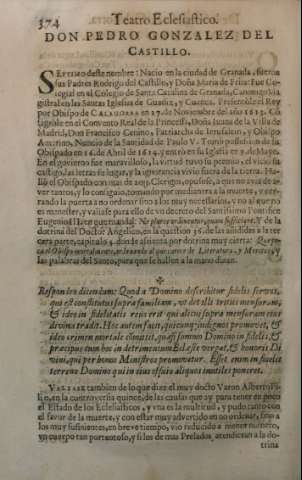 374 Teatro Eclesiastico.
DON PEDRO GONZALEZ DEL
CASTILLO.
SEPTIMO deste nombre: Nacio en la ciudad de Granada, fueron
sus Padres Rodrigo del Castillo, y Doña Maria de Frias: Fue Co-
legial en el Colegio de Santa Catalina de Granada, Canonigo Ma-
gistral en las Santas Iglesias de Guadix, y Cuenca. Presentòle el Rey
por Obispo de CALAHORRA en 27. de Noviembre del año 1613. Co
en el Convento Real de la Princesa Doña Juana de la Villa de
Madrid, Don Francisco Cenino, Patriarcha de Ierusalen, y Obispo
Nuncio de la Santidad de Paulo V. Tomò possession de su
Obispado en 16. de Abril de 1614. y entrò en su Iglesia en 9. de Mayo.
En el govierno fue maravilloso, la virtud tuvo su premio, el vicio su
castigo, las letras su lugar, y la ignorancia vivio fuera de su tierra. Ha-
llò el Obispado con mas de Clerigos, opusose, a que no avia de a-
ver tantos, y lo consiguio, tomando por medianera a la muerte, y cer-
rando la puerta a no ordenar sino a los muy necessarios, y no al que no
es manester, y valiase para ello de un decreto del Santissimo Pontifice
Eugenio II. en que manda:
dotrina del Doctor Angelico, en la question 36. de las añdidas a la ter
cera parte, capitulo 4. donde assienta por dotrina muy cierta:
las palabras del Santo, para que se hallen a la mano dizen.
Respondeo dicendum: Quod a Domino describitur fidelis servus,
qui est constitutus supra familiam, ut det illi tritici mensuram,
& ideo infidelitatis reus erit qui alicui supra mensuram eius
divina tradit. Hoc autem facit, quicumque indignos promovet, &
ideo crimen mortale committit, quasi summo Domino infidelis, &
præcipue cum hoc in detrimentum Ecclesiæ vergat, & honoris Di-
vini, qui per bonos Ministros promovetur. Esset enim infidelis
terreno Domino qui in eius officio aliquos inutiles poneret.
VALIASE tambien de lo que dize el muy docto Varon Alberto Pi-
en la controversia quinze, de las causas que ay para tener en poco
el Estado de los Eclesiasticos, y una es la multitud, y pudo tanto con
el favor de la muerte, y con estar muy advertido en no ordenar, sino a
los muy suficientes, en breve tiempo, vio reducido a menor numero,
un cuerpo tan portentoso, y si los de mas Prelados, atendieran a la do-
trina